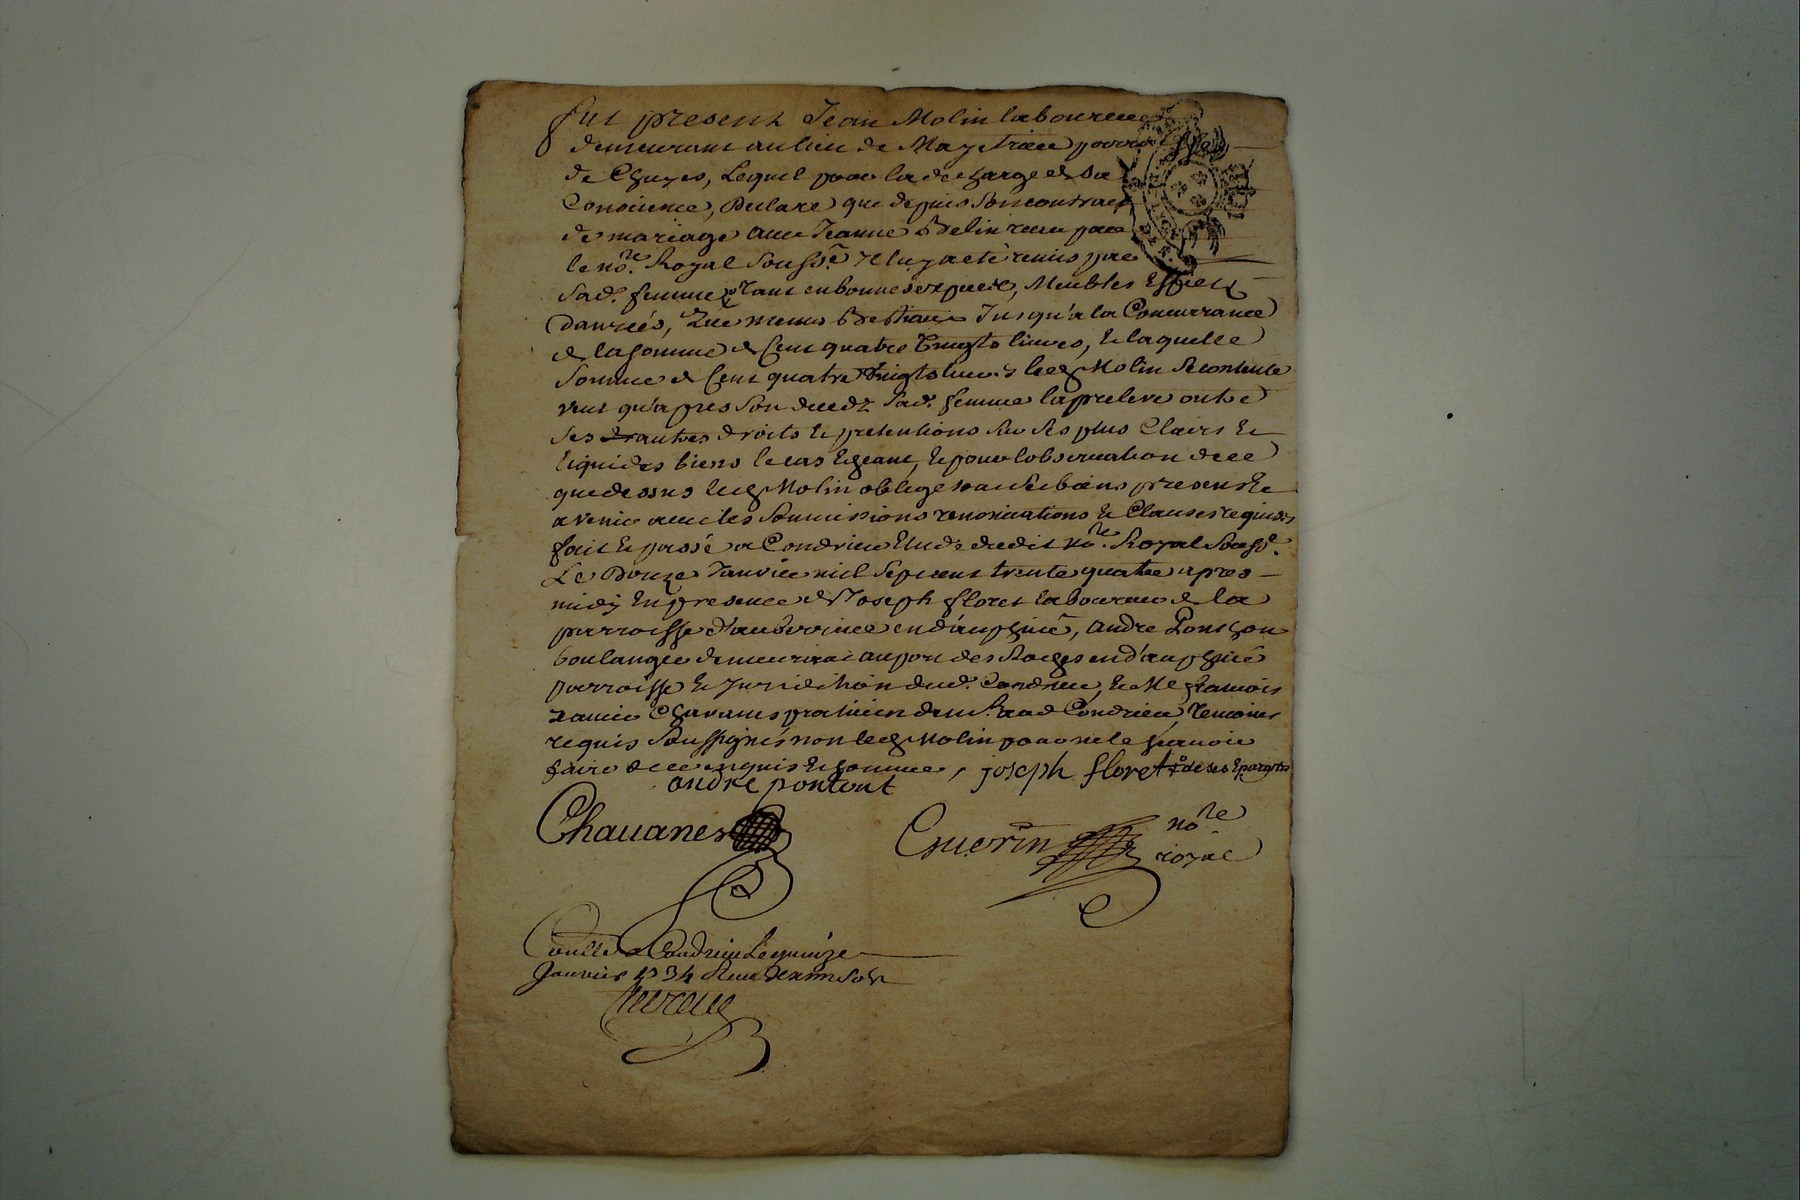 fut present Jean Molin laboureur
demeurant au lieu de May trice parroisse
de Chuyes, Lequel pour la decharge de sa
Conscience, Declare que depuis son contract
de mariage avec Jeanne Belin receu par
le no.re Royal Souss.é Il luy a eté remis par
sad.e femme tant en bonnes especes, Meubles Effects
danrées, que menus Bestiaux Jusqu'a la Concurrance
de la somme de Cent quatre Vingts livres, de laquelle
Somme de Cent quatre Vingts livres led. Molin se contente
veut qu'apres son decedz sad.e femme la preleve outre
ses autres droits et pretentions sur ses plus Clairs et
liquides biens le cas Echeant, et pour l'observation de ce
que dessus led. Molin oblige tous ses biens presents et
a venir avec les soumissions renonciations et Clauses requises
fait et passé a Condrieu Etude dudit No.re Royal Souss.é
Le Douze Janvier mil sept cent trente quatre apres
midy En presence de Joseph floret laboureur de la
parroisse d'auberrives en dauphiné, andre Ponthon
boulanger demeurant au port des Roches en dauphiné
parroisse et Jurisdiction dud. Condrieu, et Me francois
Xavier Chavanes praticien demt. aud Condrieu, temoins
requis Soussignés non led. Molin pour ne le scavoir
faire de ce enquis et sommé, joseph floret
andré pontont
Chauanes
Guerin no.re
royal
Conllé a Condrieu Le quinze
Janvier 1734 Receu